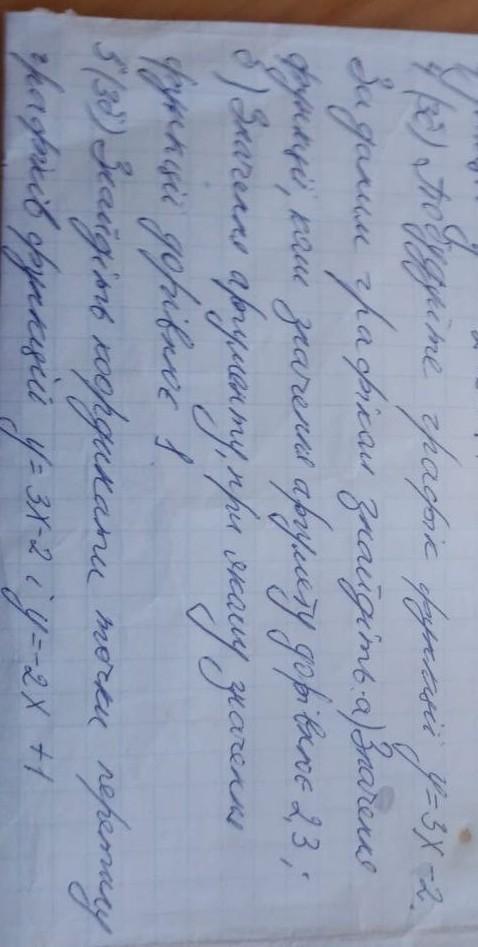 4 (3б) Побудуйте графік функції y=3x-2.
За даним графіком знайдіть: а) Значення
функції, коли значення аргумету дорівнює 2,3;
б) Значення аргументу, при якому значення
функції дорівнює 1
5 (3б) Знайдіть координати точки перетину
графіків функцій y=3x-2 і y=-2x+1